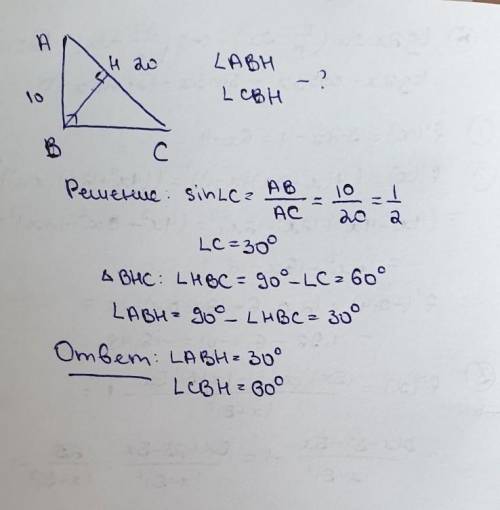 A
H 20
10
B
C
∟ABH
∟CBH - ?
Решение: sin∟C = AB/AC = 10/20 = 1/2
∟C = 30°
△BHC: ∟HBC = 90° - ∟C = 60°
∟ABH = 90° - ∟HBC = 30°
Ответ: ∟ABH = 30°
∟CBH = 60°